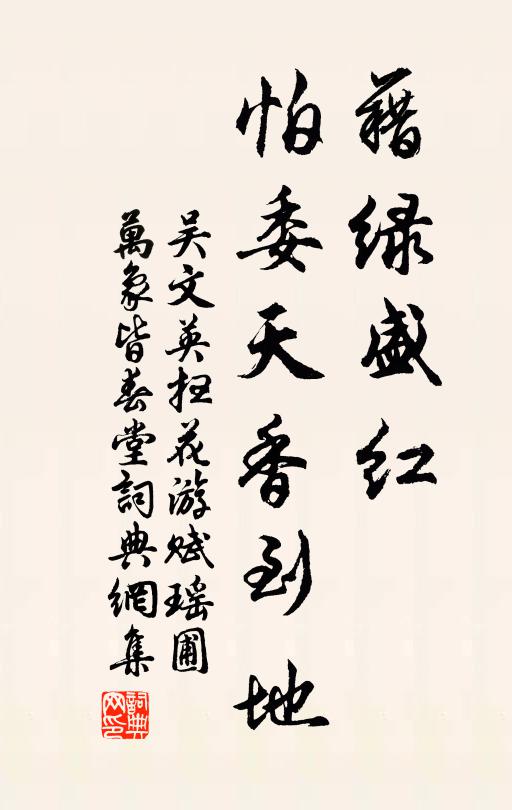 藉绿盛红
怕委天香到地
吴文英扫花游赋瑶圃
萬象皆春堂詞典網集
詞典网印